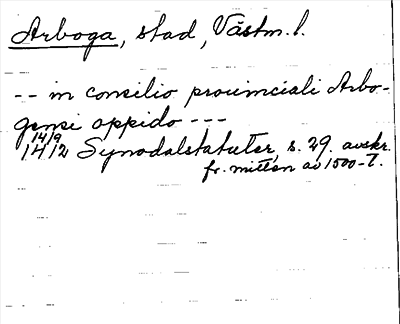 Arboga, stad, Västm. l.
-- in consilio prouinciali Arbo-
gensi oppido ---
14/9
1412 Synodalstatuter, s. 29. avskr.
fr. mitten av 1500-t.